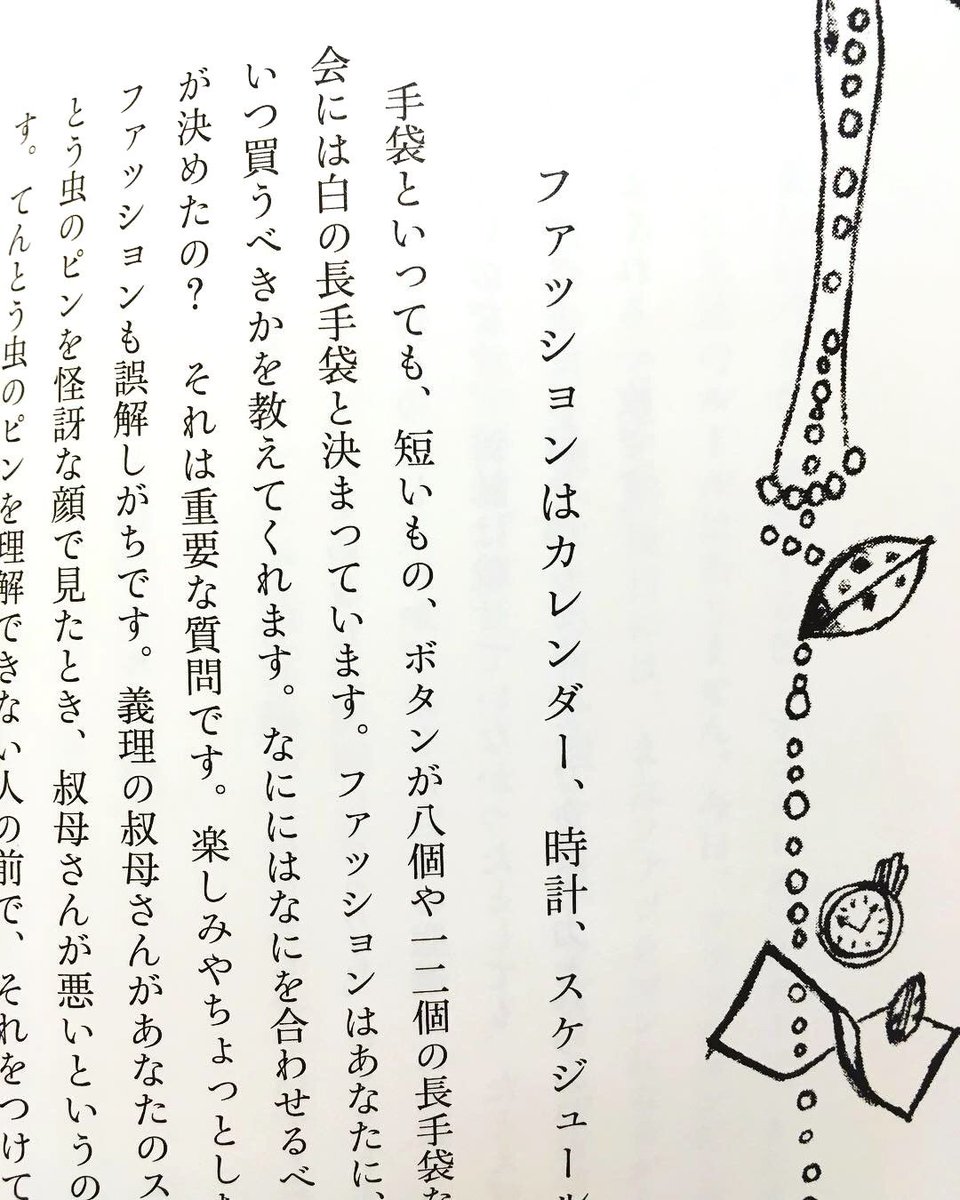 ファッションはカレンダー、時計、スケジュール
手袋といっても、短いもの、ボタンが八個や一二個の長手袋な
会には白の長手袋と決まっています。ファッションはあなたに、
いつ買うべきかを教えてくれます。なににはなにを合わせるべ
が決めたの？　それは重要な質問です。楽しみやちょっとした
ファッションも誤解しがちです。義理の叔母さんがあなたのス
とう虫のピンを怪訝な顔で見たとき、叔母さんが悪いというの
す。てんとう虫のピンを理解できない人の前で、それをつけて